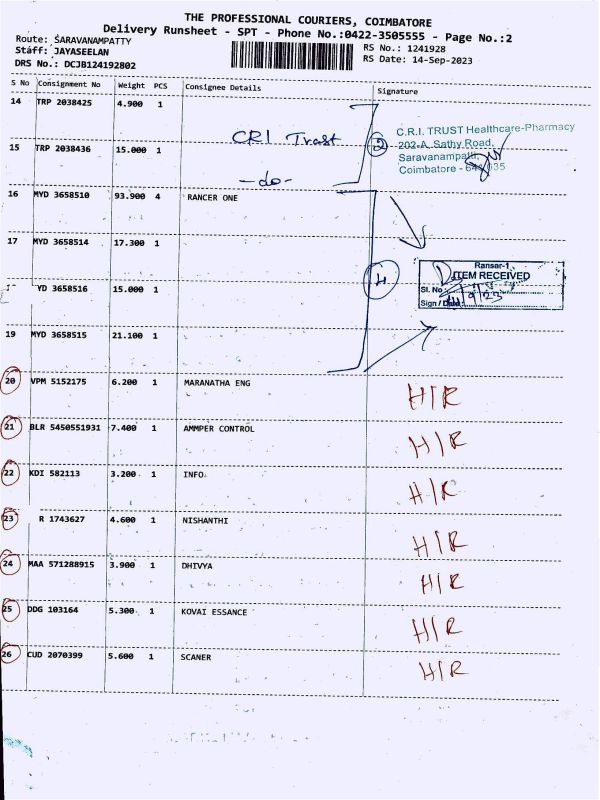 THE PROFESSIONAL COURIERS, COIMBATORE
Delivery Runsheet - SPT - Phone No.:0422-3505555 - Page No.:2
Route: SARAVANAMPATTY
Staff: JAYASEELAN
DRS No.: DCJB124192802
RS No.: 1241928
RS Date: 14-Sep-2023
S No Consignment No Weight PCS Consignee Details Signature
14 TRP 2038425 4.900 1 CRI Trust
C.R.I. TRUST Healthcare-Pharmacy
202-A, Sathy Road,
Saravanampatti,
Coimbatore - 641 035
2
15 TRP 2038436 15.000 1 -do-
16 MYD 3658510 93.900 4 RANCER ONE
17 MYD 3658514 17.300 1
4
Ransar-1
ITEM RECEIVED
Sl. No
Sign / Date
YD 3658516 15.000 1
19 MYD 3658515 21.100 1
20 VPM 5152175 6.200 1 MARANATHA ENG H/R
21 BLR 5450551931 7.400 1 AMMPER CONTROL H/R
22 KDI 582113 3.200 1 INFO H/R
23 R 1743627 4.600 1 NISHANTHI H/R
24 MAA 571288915 3.900 1 DHIVYA H/R
25 DDG 103164 5.300 1 KOVAI ESSANCE H/R
26 CUD 2070399 5.600 1 SCANER H/R